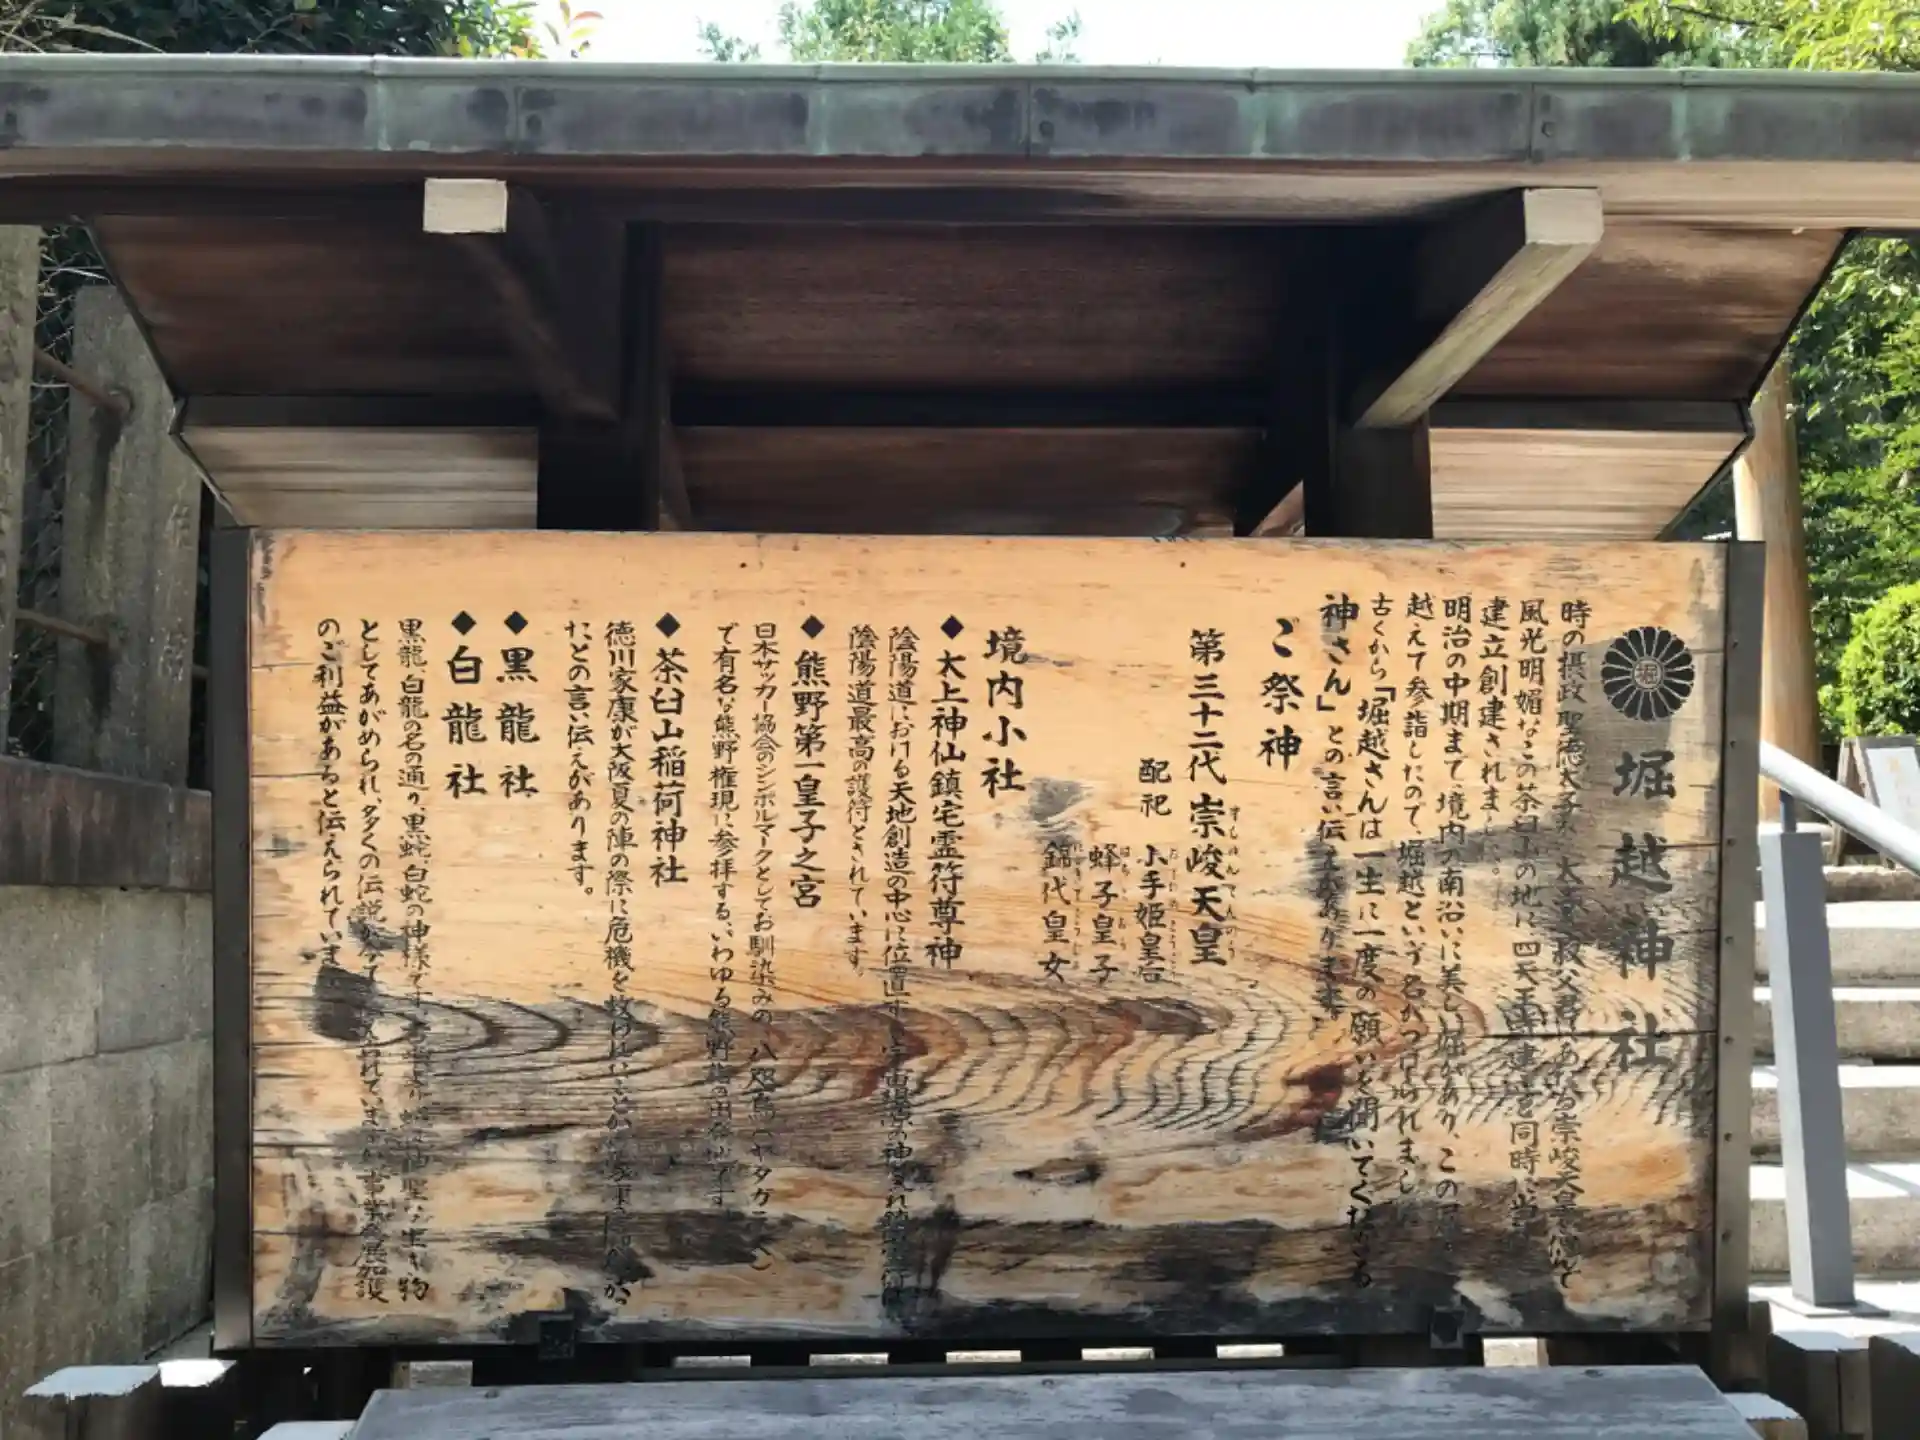 堀
堀越神社
時の摂政 聖徳太子が 大 叔父君 あ 崇峻天皇を偲んで
風光明媚なこの茶臼山の地に 四天王寺建 と同時に当
建立創建されました。
明治の中期まで、境内の南沿いに美しい堀があり、この
越えて参詣したので、堀越という名がつけられました
古くから「堀越さんは一生に一度の願いを聞いてくださる
神さん」との言い伝えがあります。
ご祭神
第三十二代 崇峻天皇
配祀 小手姫皇后
蜂子皇子
錦代皇女
境内小社
◆太上神仙鎮宅霊符尊神
陰陽道における天地創造の中心に位置す
陰陽道最高の護符とされています。
◆熊野第一皇子之宮
日本サッカー協会のシンボルマークとしてお馴染みの、八咫烏(ヤタガラス)
で有名な熊野権現に参拝する、いわゆる熊野 の出発地です
◆茶臼山稲荷神社
徳川家康が大阪夏の陣の際に危機を
たとの言い伝えがあります。
◆黒龍社
◆白龍社
黒龍、白龍の名の通り、黒蛇、白蛇の神様です 生き物
としてあがめられ、多くの伝説が 事業発展加護
のご利益があると伝えられています